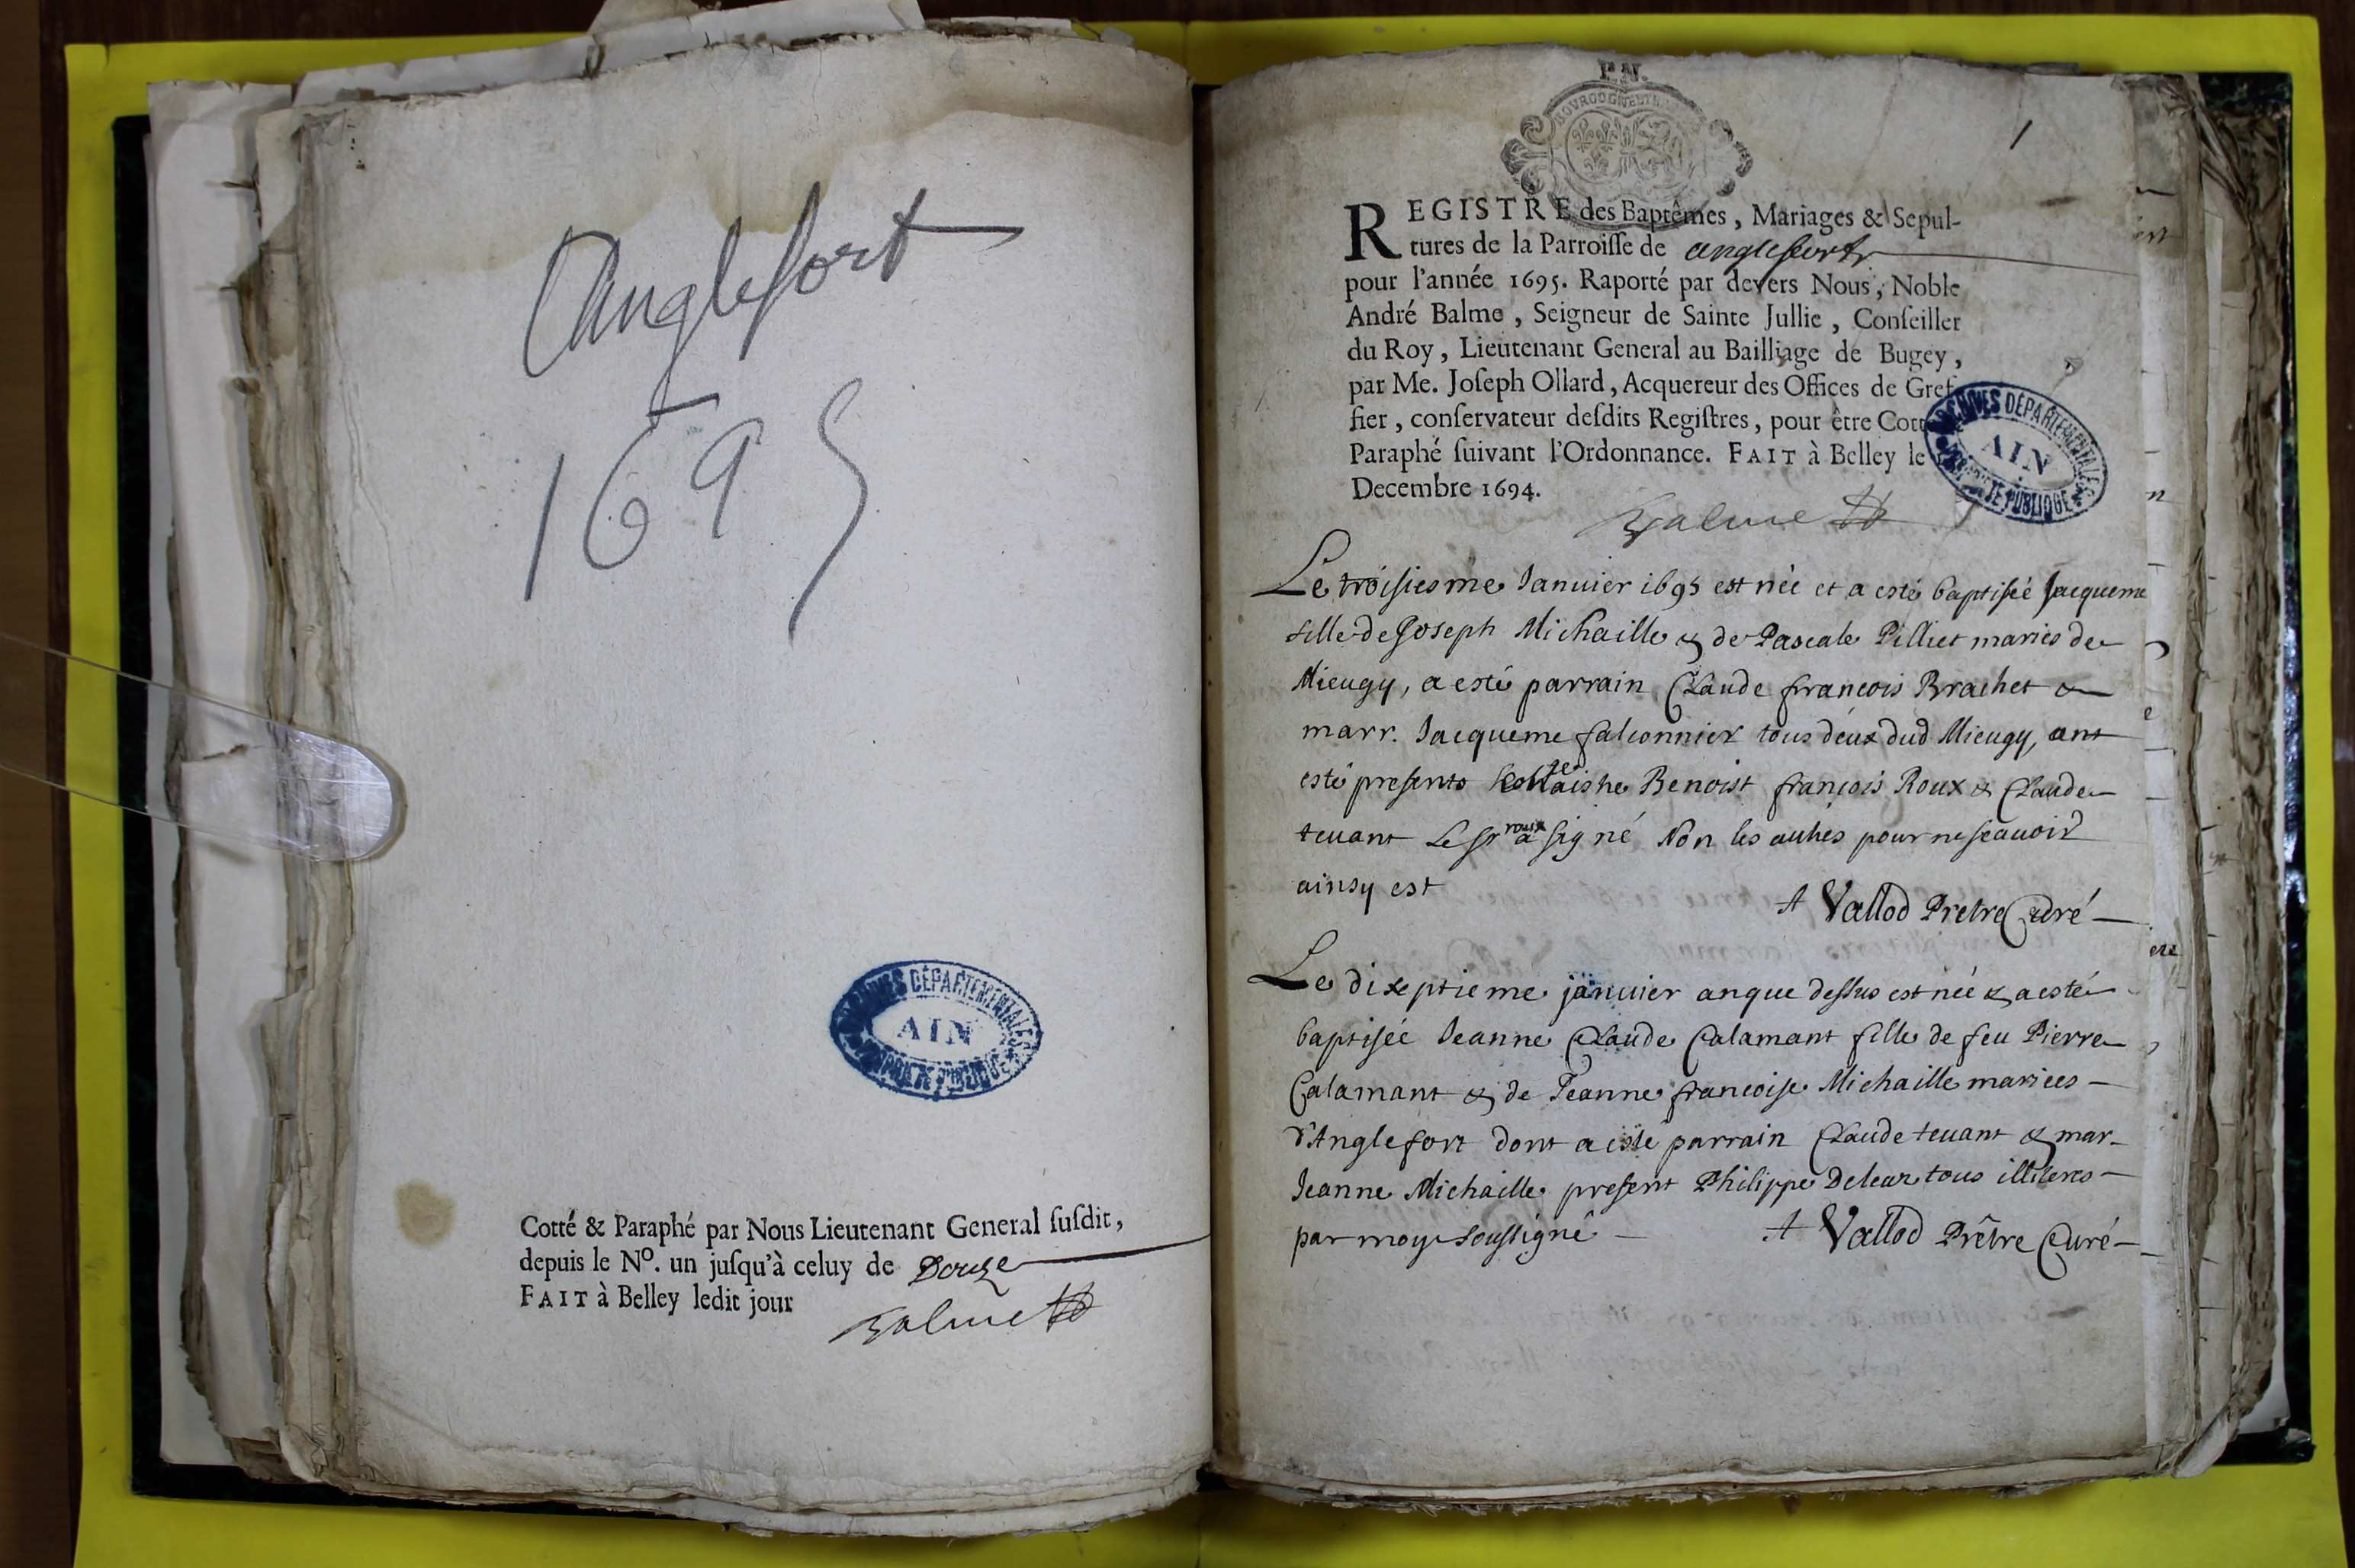 Anglefort
1695
ARCHIVES DÉPARTEMENTALES
AIN
Cotté & Paraphé par Nous Lieutenant General ſuſdit,
depuis le Nº. un juſqu'à celuy de Douze
FAIT à Belley ledit jour
Balme
P. N.
1
REGISTRE des Baptêmes, Mariages & Sepul-
tures de la Parroiſſe de anglefort
pour l'année 1695. Raporté par devers Nous, Noble
André Balme, Seigneur de Sainte Jullie, Conſeiller
du Roy, Lieutenant General au Bailliage de Bugey,
par Me. Joſeph Ollard, Acquereur des Offices de Gref-
fier, conſervateur deſdits Regiſtres, pour être Cott
Paraphé ſuivant l'Ordonnance. FAIT à Belley le
Decembre 1694.
ARCHIVES DÉPARTEMENTALES
AIN
PUBLIQUE
Balme
Le troisiesme Januier 1695 est née et a esté baptisée Jacqueme
fille de Joseph Michaille & de Pascale Pilliet mariés de
Mieugy, a esté parrain Claude francois Brachet &
marr. Jacqueme falconnier tous deux dud Mieugy, ont
esté presents Benoist françois Roux & Claude
teuant Le sr roux a signé Non les autres pour ne scauoir
ainsy est
A Vallod Pretre Curé
Le dixseptieme januier an que dessus est née & a esté
baptisée Jeanne Claude Calamant fille de feu Pierre
Calamant & de Jeanne francoise Michaille mariees
d'Anglefort dont a esté parrain Claude teuant & mar.
Jeanne Michaille present Philippe tous illiteres
par moy soussigné
A Vallod Prêtre Curé